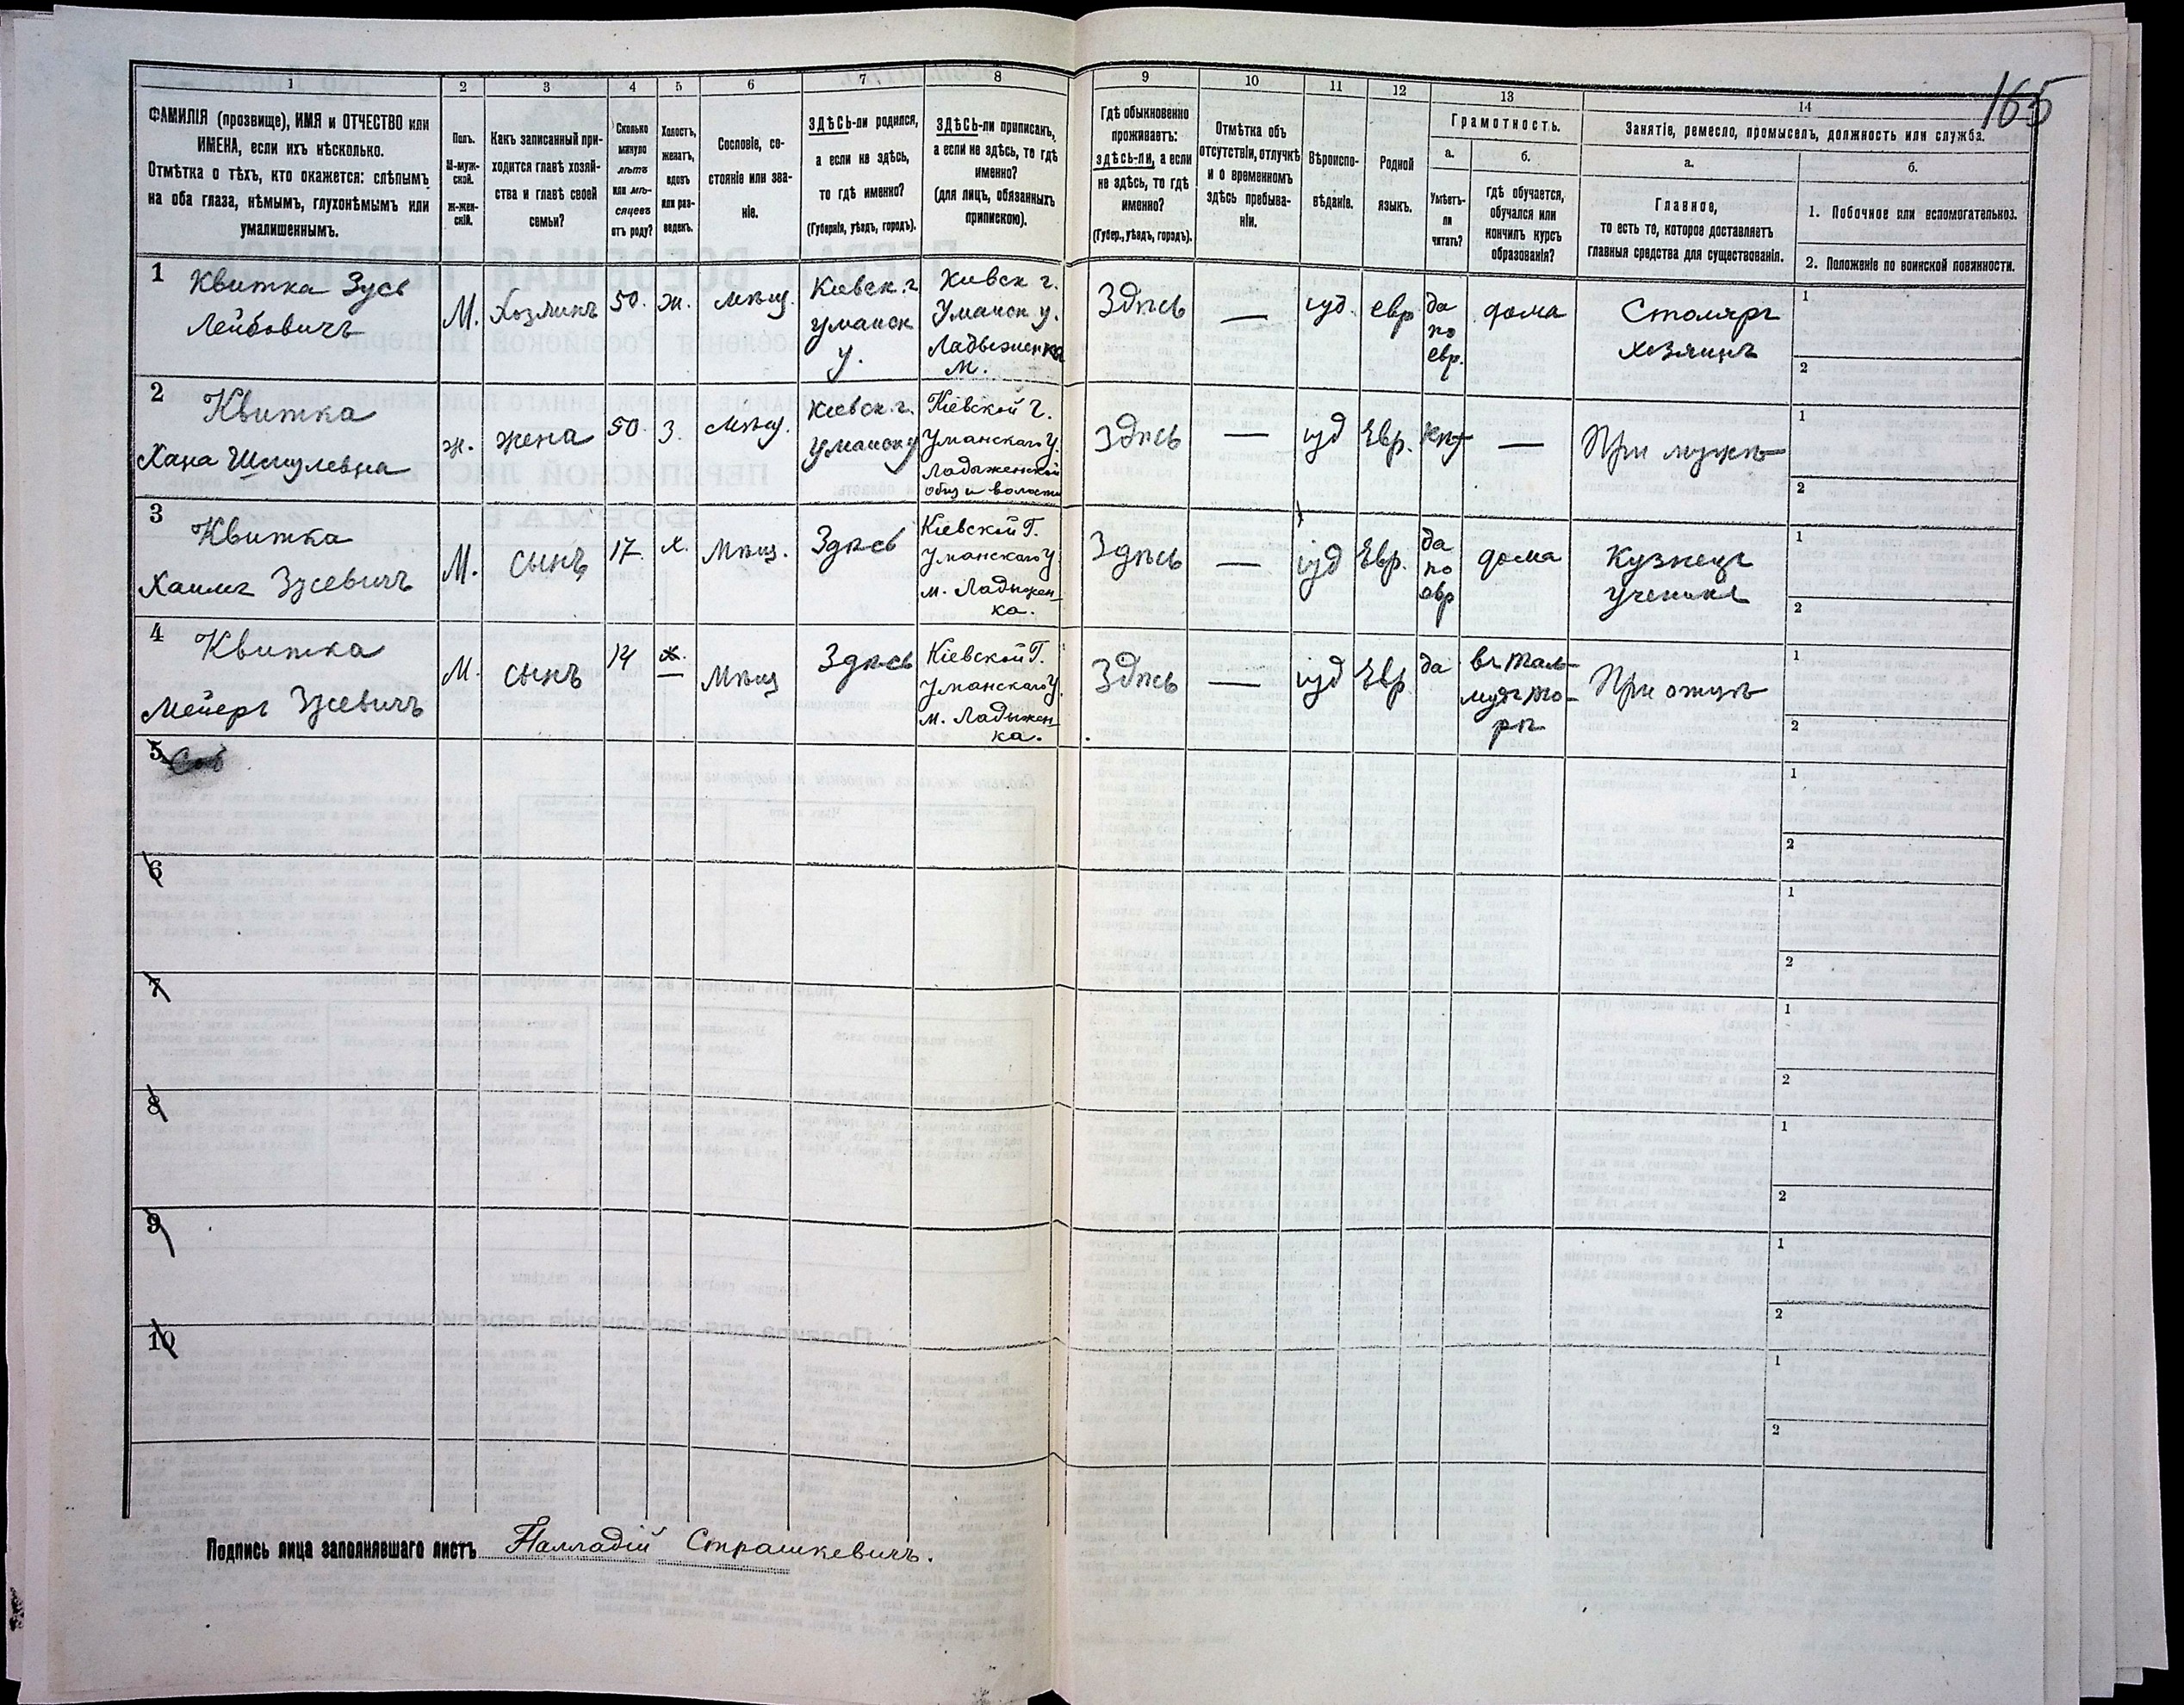 165
1
2
3
4
5
6
7
8
9
10
11
12
13
14
ФАМИЛІЯ (прозвище), ИМЯ и ОТЧЕСТВО или
ИМЕНА, если ихъ нѣсколько.
Отмѣтка о тѣхъ, кто окажется: слѣпымъ
на оба глаза, нѣмымъ, глухонѣмымъ или
умалишеннымъ.
Полъ.
М-муж-
ской.
Ж-жен-
скій.
Какъ записанный при-
ходится главѣ хозяй-
ства и главѣ своей
семьи?
Сколько
минуло
лѣтъ
или мѣ-
сяцевъ
отъ роду?
Холостъ,
женатъ,
вдовъ
или раз-
веденъ.
Сословіе, со-
стояніе или зва-
ніе.
ЗДѢСЬ-ли родился,
а если не здѣсь,
то гдѣ именно?
(Губернія, уѣздъ, городъ).
ЗДѢСЬ-ли приписанъ,
а если не здѣсь, то гдѣ
именно?
(для лицъ, обязанныхъ
припискою).
Гдѣ обыкновенно
проживаетъ:
здѣсь-ли, а если
не здѣсь, то гдѣ
именно?
(Губер., уѣздъ, городъ).
Отмѣтка объ
отсутствіи, отлучкѣ
и о временномъ
здѣсь пребыва-
ніи.
Вѣроиспо-
вѣданіе.
Родной
языкъ.
Грамотность.
а.
Умѣетъ-
ли
читать?
б.
гдѣ обучается,
обучался или
кончилъ курсъ
образованія?
Занятіе, ремесло, промыселъ, должность или служба.
а.
Главное,
то есть то, которое доставляетъ
главныя средства для существованія.
б.
1. Побочное или вспомогательное.
2. Положеніе по воинской повинности.
1
Квитка Зусь
Лейбовичъ
М.
Хозяинъ
50.
ж.
мѣщ.
Кіевск. г.
Уманск
у.
Кіевск г.
Уманск у.
Ладыженка
м.
Здѣсь
—
іуд.
евр
да
по
евр.
дома
Столяръ
хозяинъ
1
2
2
Квитка
Хана Шмулевна
ж.
жена
50.
З.
мѣщ.
Кіевск. г.
Уманск у
Кіевской г.
Уманскаго у.
Ладыженской
общ и волости
Здѣсь
—
іуд
Евр.
нѣт
—
При мужѣ
1
2
3
Квитка
Хаимъ Зусевичъ
М.
сынъ
17.
х.
Мѣщ.
Здѣсь
Кіевской Г.
Уманскаго У
м. Ладыжен-
ка.
Здѣсь
—
іуд
Евр.
да
по
евр
дома
Кузнецъ
ученикъ
1
2
4
Квитка
Мейеръ Зусевичъ
М.
сынъ
14
х.
—
Мѣщ
Здѣсь
Кіевской Г.
Уманскаго У.
м. Ладыжен-
ка.
Здѣсь
—
іуд
Евр.
да
въ тал-
мудъ то-
рѣ
При отцѣ
1
2
5
1
2
6
1
2
7
1
2
8
1
2
9
1
2
10
1
2
Подпись лица заполнявшаго листъ Палладій Страшкевичъ.